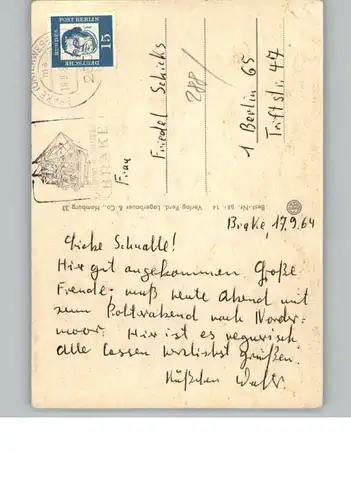 DEUTSCHE
BUNDES
POST BERLIN
15
BRAKE
288/
Frau
Friedel Schicks
1 Berlin 65
Triftstr. 47
Verlag Ferd. Lagerbauer & Co., Hamburg 33
Brake, 17.9.64
Liebe Schnalle!
Hier gut angekommen. Große
Freude, muß heute Abend mit
zum Polterabend nach Norder-
moor. Hier ist es regnerisch.
Alle lassen herzlichst grüßen.
Küßchen